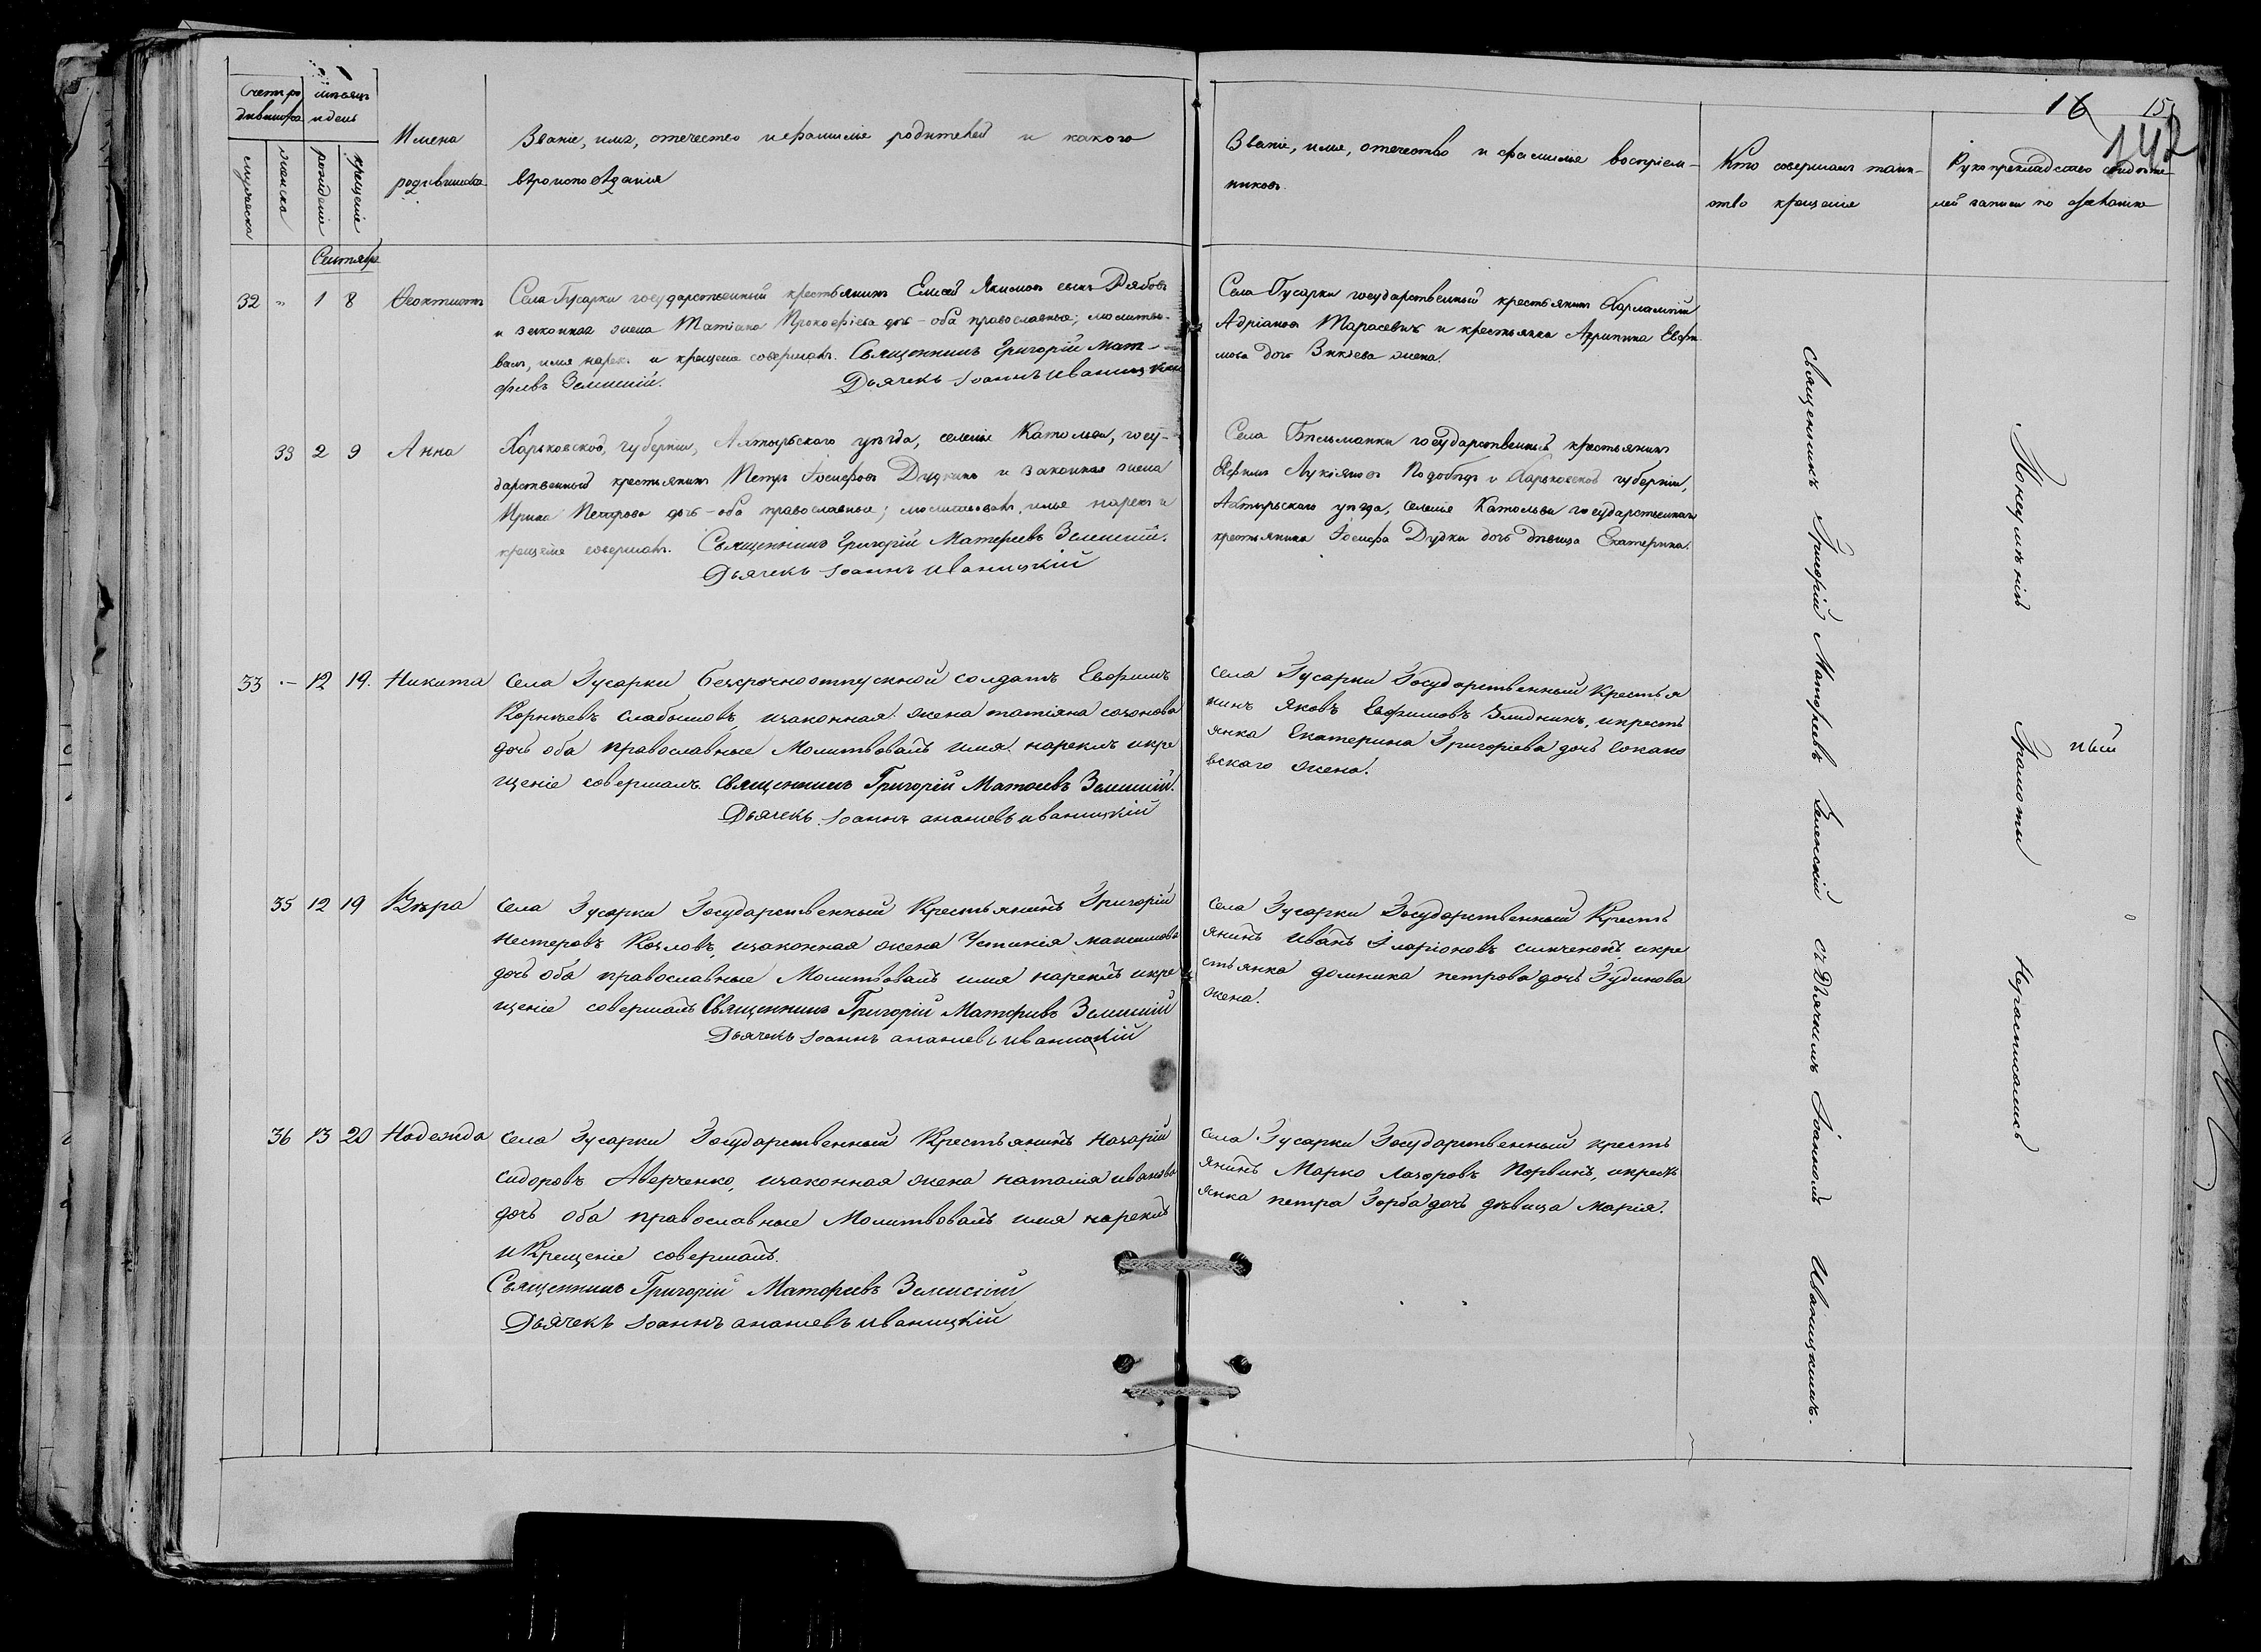 16 15
142
Счетъ ро- мѣсяцъ
дившихся и день
мужеска
женска
рожденіе
крещеніе
Имена
родившихся
Званіе, имя, отечество и фамилія родителей и какого
вѣроисповѣданія
Званіе, имя, отечество и фамилія воспріем-
никовъ
Кто совершалъ таин-
ство крещенія
Рукоприкладство свидѣте-
лей записи по желанію
Сентябрь
32 " 1 8 Феоктистъ
Села Гусарки государственный крестьянинъ Елисей Якимовъ сынъ Рябовъ
и законная жена Татіана Прокофіева дочь - оба православные; молитво-
валъ, имя нарекъ и крещеніе совершалъ. Священникъ Григорій Мат-
феевъ Зеленскій. Дьячекъ Іоаннъ Иваницкій
Села Гусарки государственный крестьянинъ Харлампій
Адріановъ Тарасевичъ и крестьянка Агрипина Евфи-
мова дочь жена.
33 2 9 Анна
Харьковской губерніи, Ахтырскаго уѣзда, селенія Котельвы, госу-
дарственный крестьянинъ Петръ Іосифовъ и законная жена
Ирина Петрова дочь - оба православные; молитвовалъ, имя нарекъ и
крещеніе совершалъ. Священникъ Григорій Матфеевъ Зеленскій.
Дьячекъ Іоаннъ Иваницкій
Села Бѣльманки государственный крестьянинъ
Евфимъ Лукіяновъ Подобѣдъ и Харьковской губерніи,
Ахтырскаго уѣзда, селенія Котельвы государственнаго
крестьянина Іосифа Дудки дочь дѣвица Екатерина.
33 - 12 19. Никита
Села Гусарки безсрочноотпускной солдатъ Евфимъ
Корнѣевъ изаконная жена татіана созонова
дочь оба православные Молитвовалъ имя нарекълъ икре
щеніе совершалъ. Священникъ Григорій Матѳеевъ Зеленскій.
Дьячекъ Іоаннъ ананіевъ иваницкій
села Гусарки Государственный Крестья
нинъ Яковъ Евфимовъ икресть
янка Екатерина Григоріева дочь
вскаго жена.
35 12 19 Вѣра
Села Гусарки Государственный Крестьянинъ Григорій
нестеровъ Козловъ, изаконная жена Устинія максимова
дочь оба православные Молитвовалъ имя нарекълъ икре
щеніе совершалъ Священникъ Григорій Матфеевъ Зеленскій
Дьячекъ Іоаннъ ананіевъ иваницкій
села Гусарки Государственный Кресть
янинъ иванъ Іларіоновъ икре
стьянка домника петрова дочь Гудикова
жена.
36 13 20 Надежда
Села Гусарки Государственный Крестьянинъ назарій
сидоровъ Аверченко, изаконная жена наталія иванова
дочь оба православные Молитвовалъ имя нарекълъ
и Крещеніе совершалъ.
Священникъ Григорій Матфеевъ Зеленскій
Дьячекъ Іоаннъ ананіевъ иваницкій
села Гусарки Государственный кресть
янинъ Марко Лазоровъ икресть
янка петра Горба дочь дѣвица марія.
Священникъ Григорій Матфеевъ Зеленскій съ Дьячкомъ Іоанномъ Иваницкимъ.
Понеумѣнію Грамоты Нерасписались
ный